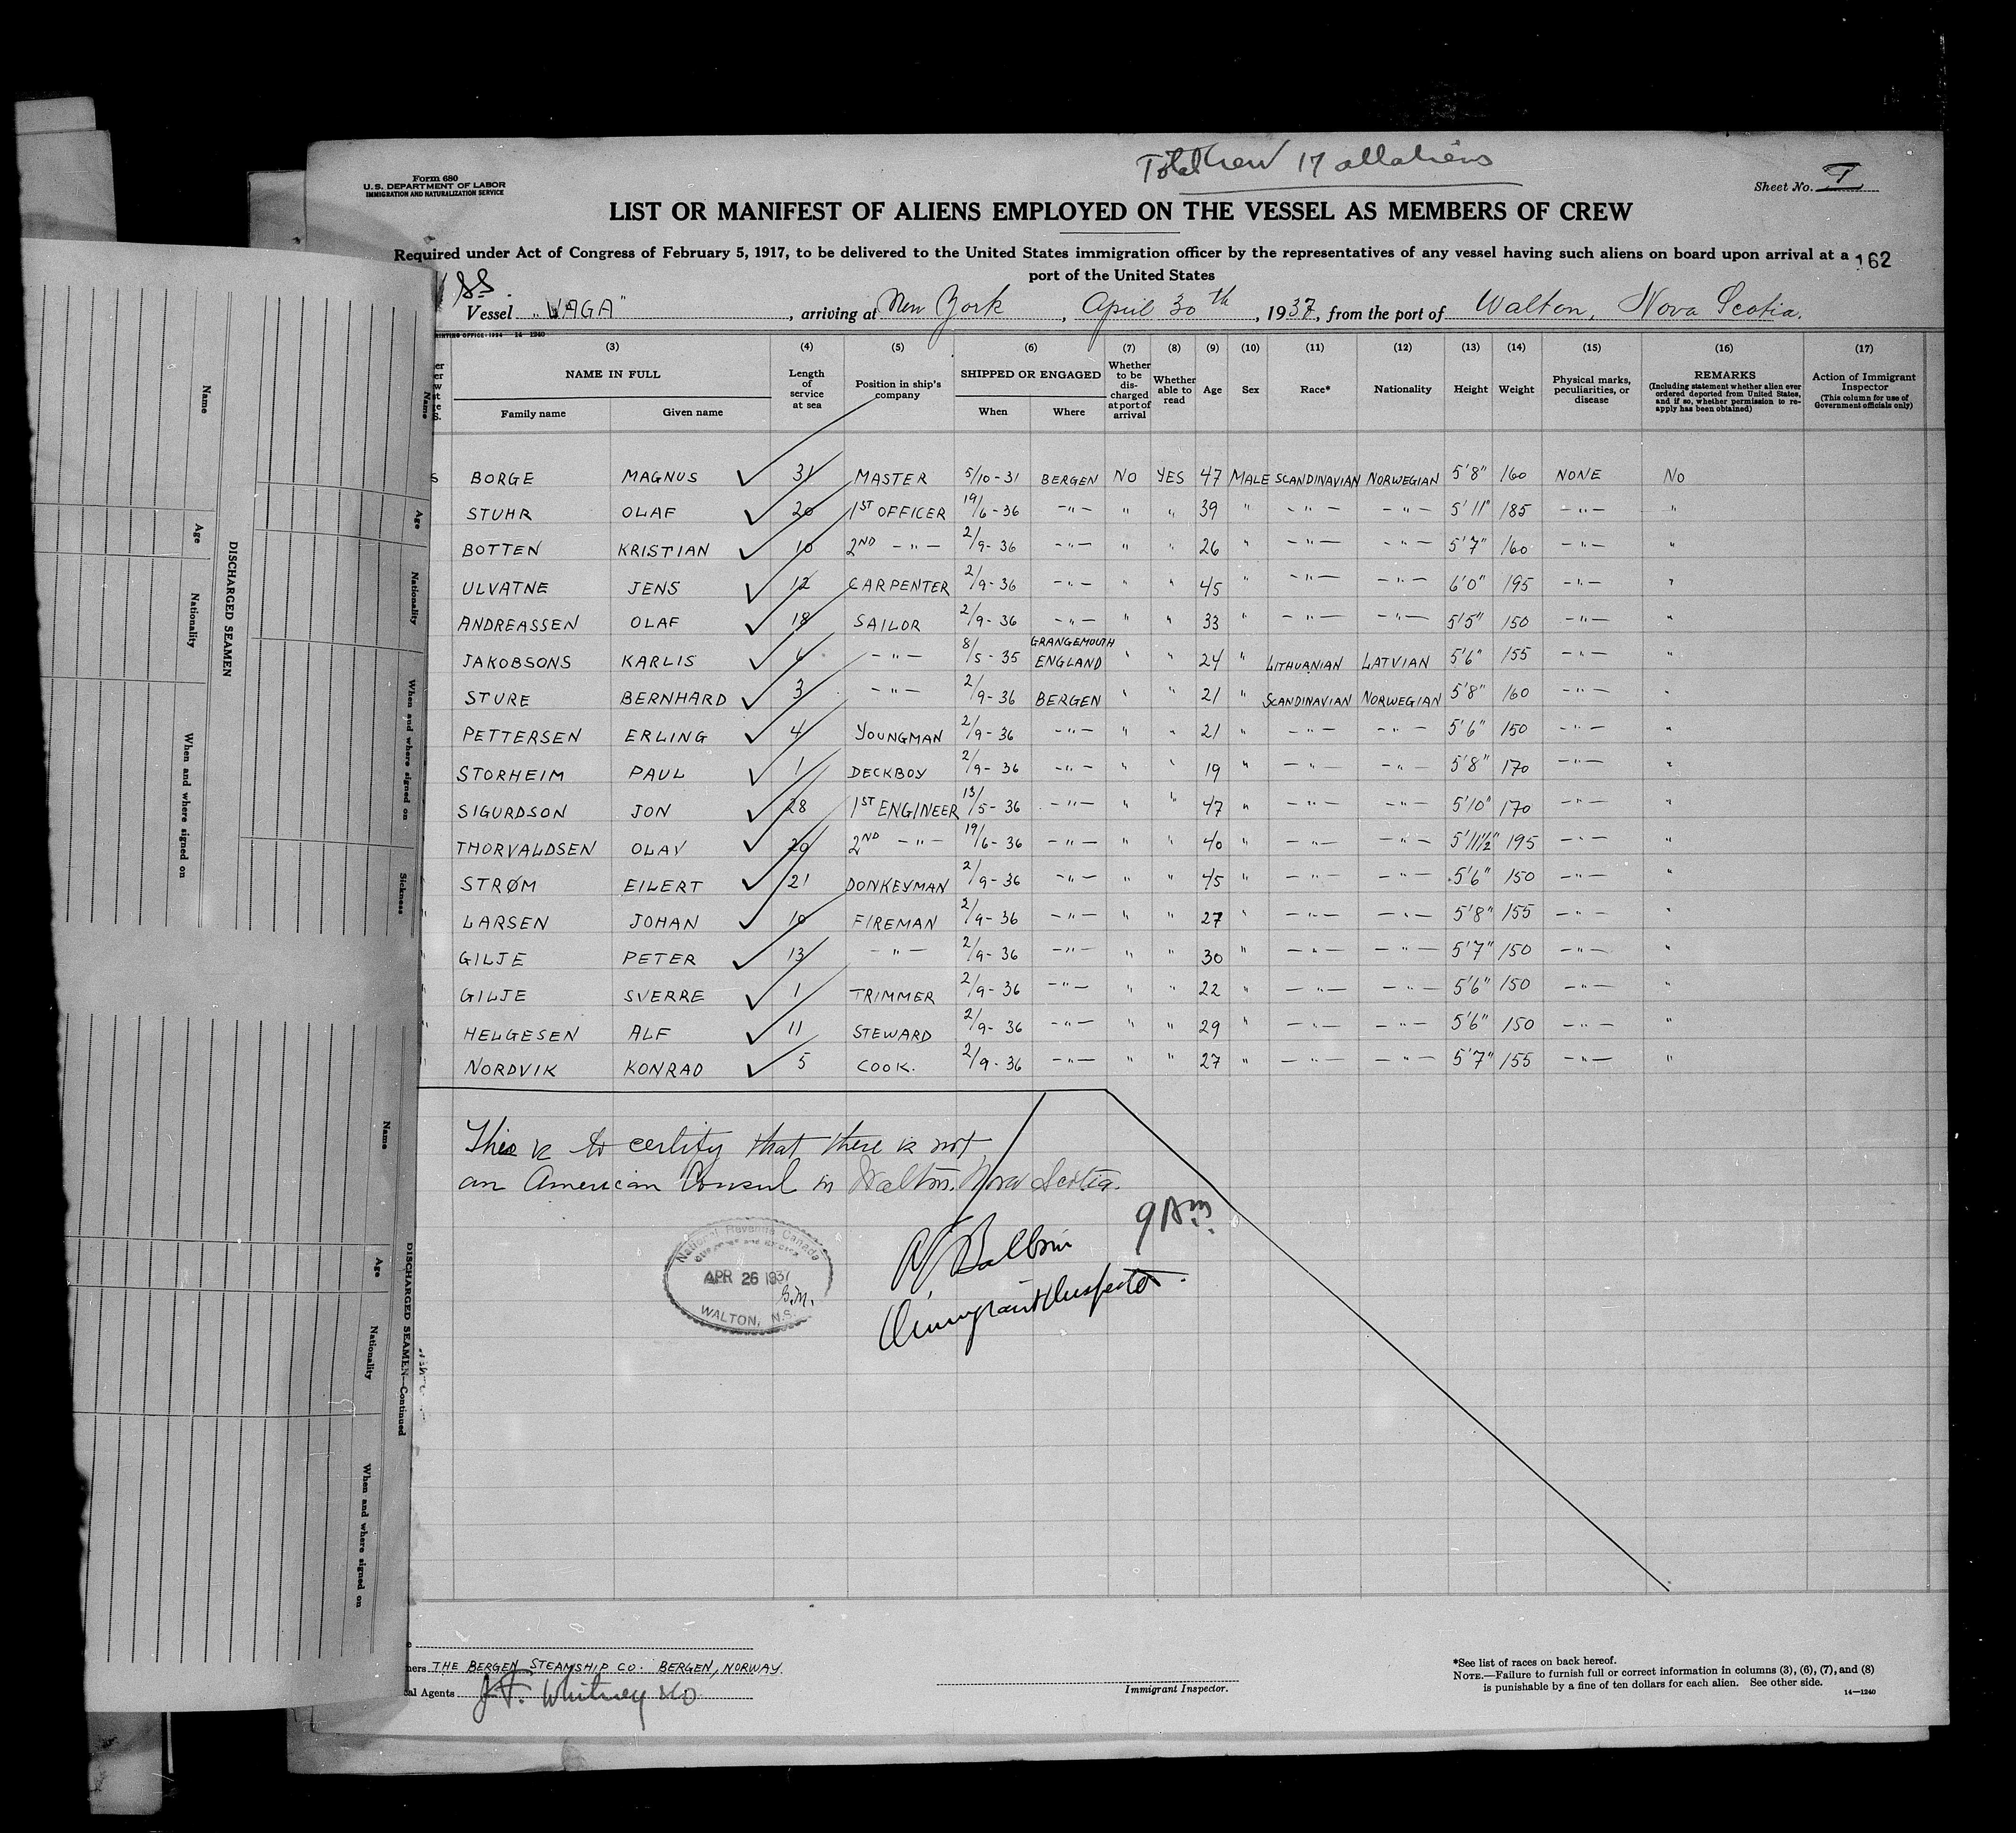 Total Crew 17 all aliens
Form 680
U. S. DEPARTMENT OF LABOR
IMMIGRATION AND NATURALIZATION SERVICE
Sheet No. I
LIST OR MANIFEST OF ALIENS EMPLOYED ON THE VESSEL AS MEMBERS OF CREW
Required under Act of Congress of February 5, 1917, to be delivered to the United States immigration officer by the representatives of any vessel having such aliens on board upon arrival at a
port of the United States
162
SS.
Vessel "VAGA", arriving at New York, April 30th, 1937, from the port of Walton, Nova Scotia.
(3) (4) (5) (6) (7) (8) (9) (10) (11) (12) (13) (14) (15) (16) (17)
NAME IN FULL
Family name
Given name
Length of service at sea
Position in ship's company
SHIPPED OR ENGAGED
When
Where
Whether to be discharged at port of arrival
Whether able to read
Age
Sex
Race*
Nationality
Height
Weight
Physical marks, peculiarities, or disease
REMARKS
(Including statement whether alien ever ordered deported from United States, and if so, whether permission to re-apply has been obtained)
Action of Immigrant Inspector
(This column for use of Government officials only)
BORGE MAGNUS 31 MASTER 5/10-31 BERGEN NO YES 47 MALE SCANDINAVIAN NORWEGIAN 5'8" 160 NONE NO
STUHR OLAF 20 1ST OFFICER 19/6-36 -"- " " 39 " -"- -"- 5'11" 185 -"- "
BOTTEN KRISTIAN 10 2ND -"- 2/9-36 -"- " " 26 " -"- -"- 5'7" 160 -"- "
ULVATNE JENS 12 CARPENTER 2/9-36 -"- " " 45 " -"- -"- 6'0" 195 -"- "
ANDREASSEN OLAF 18 SAILOR 2/9-36 -"- " " 33 " -"- -"- 5'5" 150 -"- "
JAKOBSONS KARLIS 6 -"- 8/5-35 GRANGEMOUTH ENGLAND " " 24 " LITHUANIAN LATVIAN 5'6" 155 -"- "
STURE BERNHARD 3 -"- 2/9-36 BERGEN " " 21 " SCANDINAVIAN NORWEGIAN 5'8" 160 -"- "
PETTERSEN ERLING 4 YOUNGMAN 2/9-36 -"- " " 21 " -"- -"- 5'6" 150 -"- "
STORHEIM PAUL 1 DECKBOY 2/9-36 -"- " " 19 " -"- -"- 5'8" 170 -"- "
SIGURDSON JON 28 1ST ENGINEER 13/5-36 -"- " " 47 " -"- -"- 5'10" 170 -"- "
THORVALDSEN OLAV 20 2ND -"- 19/6-36 -"- " " 40 " -"- -"- 5'11½" 195 -"- "
STRØM EILERT 21 DONKEYMAN 2/9-36 -"- " " 45 " -"- -"- 5'6" 150 -"- "
LARSEN JOHAN 10 FIREMAN 2/9-36 -"- " " 27 " -"- -"- 5'8" 155 -"- "
GILJE PETER 13 -"- 2/9-36 -"- " " 30 " -"- -"- 5'7" 150 -"- "
GILJE SVERRE 1 TRIMMER 2/9-36 -"- " " 22 " -"- -"- 5'6" 150 -"- "
HELGESEN ALF 11 STEWARD 2/9-36 -"- " " 29 " -"- -"- 5'6" 150 -"- "
NORDVIK KONRAD 5 COOK. 2/9-36 -"- " " 27 " -"- -"- 5'7" 155 -"- "
This is to certify that there is not
an American Consul in Walton, Nova Scotia.
9 AM
Immigrant Inspector.
National Revenue Canada
APR 26 1937
G.M.
WALTON, N.S.
THE BERGEN STEAMSHIP CO. BERGEN, NORWAY.
Agents J. F. Whitney & Co
Immigrant Inspector.
*See list of races on back hereof.
NOTE.—Failure to furnish full or correct information in columns (3), (6), (7), and (8)
is punishable by a fine of ten dollars for each alien. See other side.
14—1240
DISCHARGED SEAMEN
Name
Age
Nationality
When and where signed on
Name
Age
Nationality
When and where signed on
Sickness
DISCHARGED SEAMEN—Continued
Name
Age
Nationality
When and where signed on